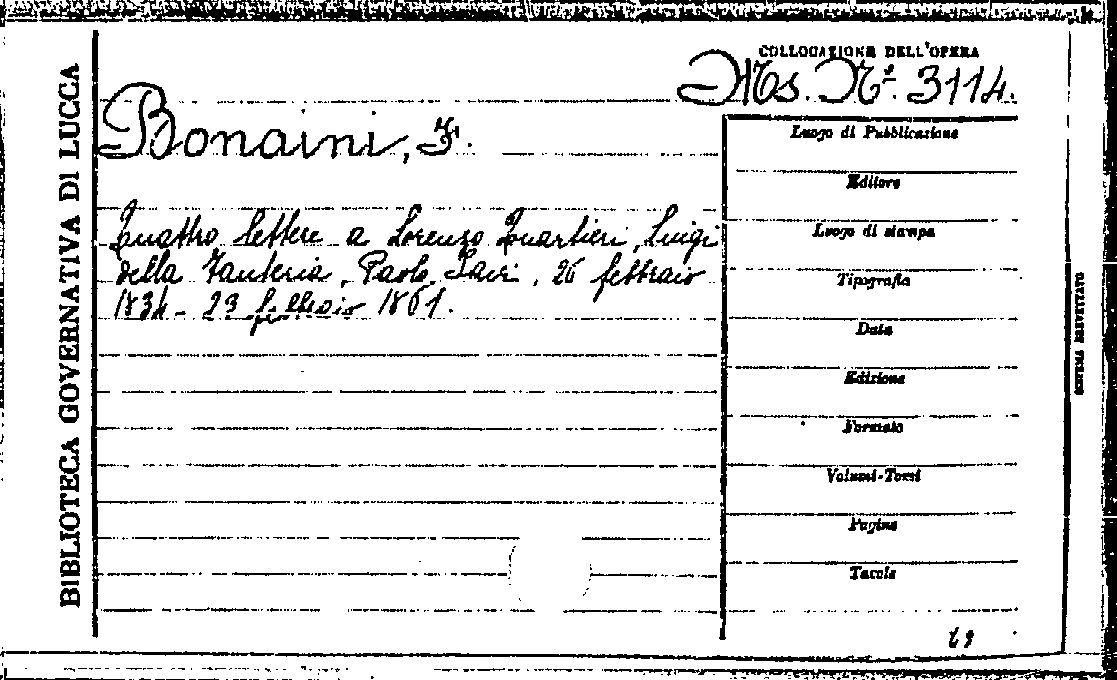 BIBLIOTECA GOVERNATIVA DI LUCCA
COLLOCAZIONE DELL'OPERA
Ms. Nº. 3114.
Bonaini, F.
Quattro lettere a Lorenzo Quartieri, Luigi
della Fanteria, Paolo Savi, 26 febbraio
1834 - 23 febbraio 1861.
Luogo di Pubblicazione
Editore
Luogo di stampa
Tipografia
Data
Edizione
Formato
Volumi-Tomi
Pagine
Tavole